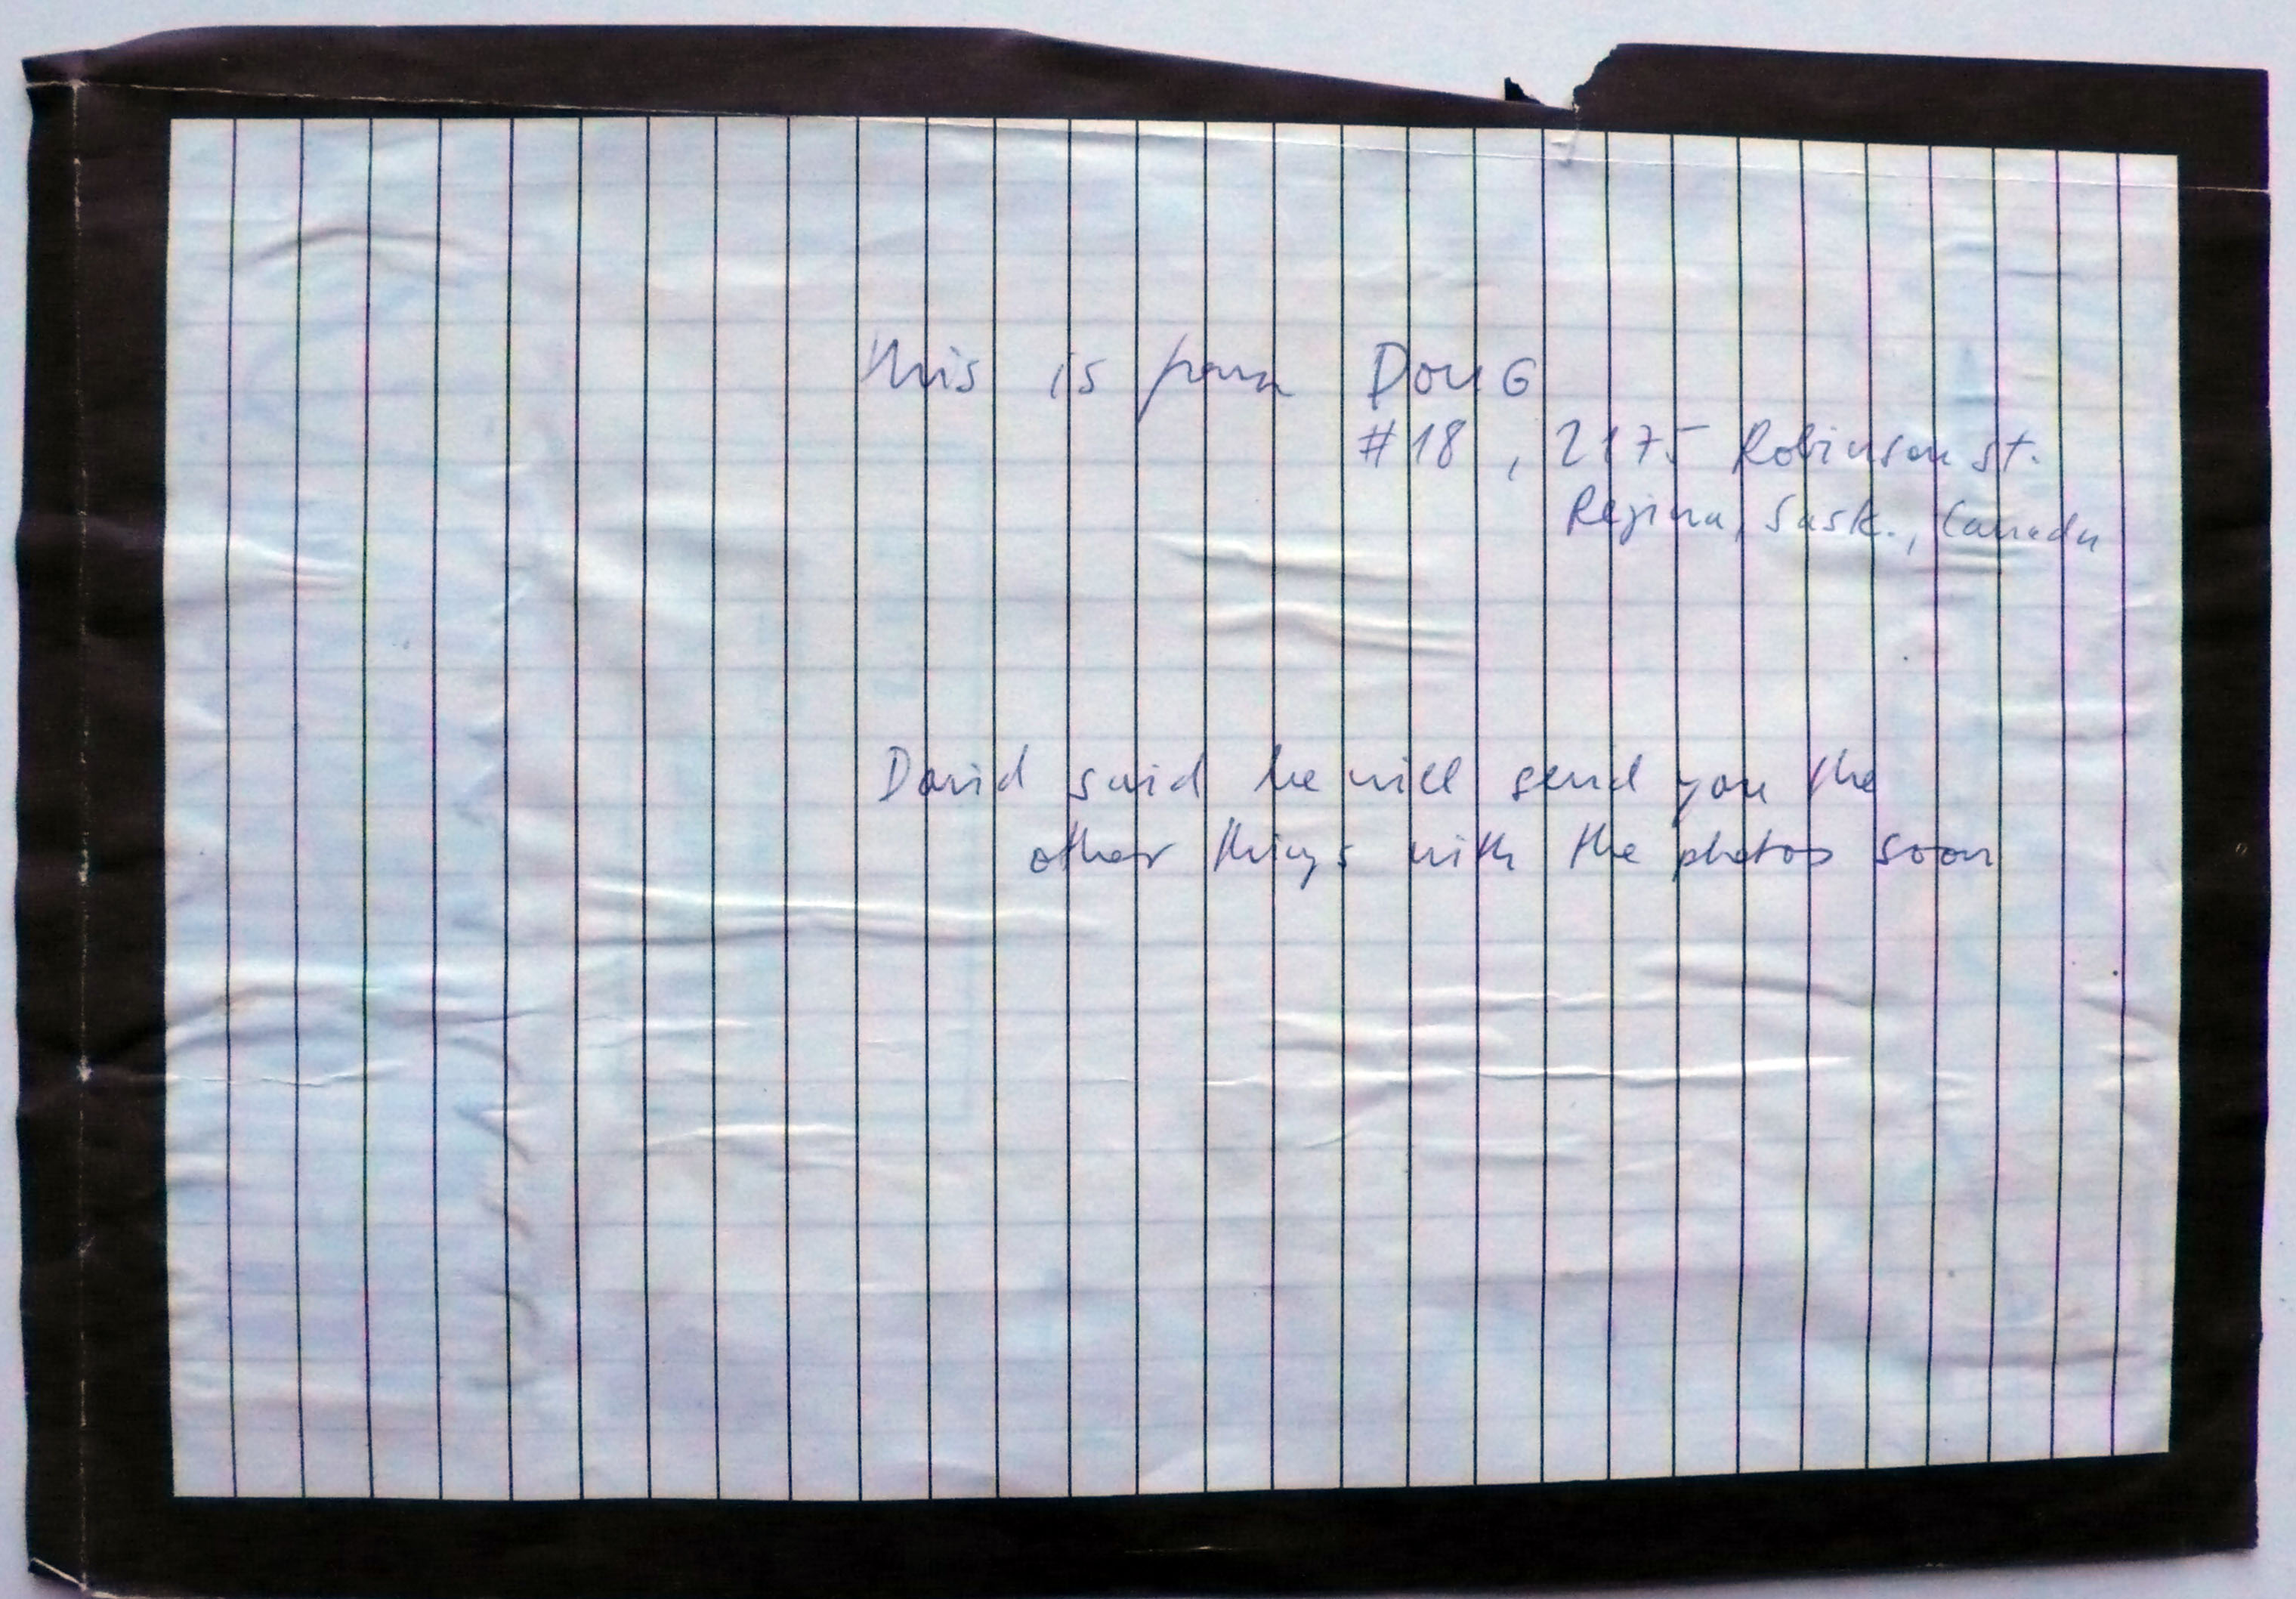 This is from DouG
#18, 2175 Robinson st.
Regina, Sask., Canada
David said he will send you the
other things with the photos soon